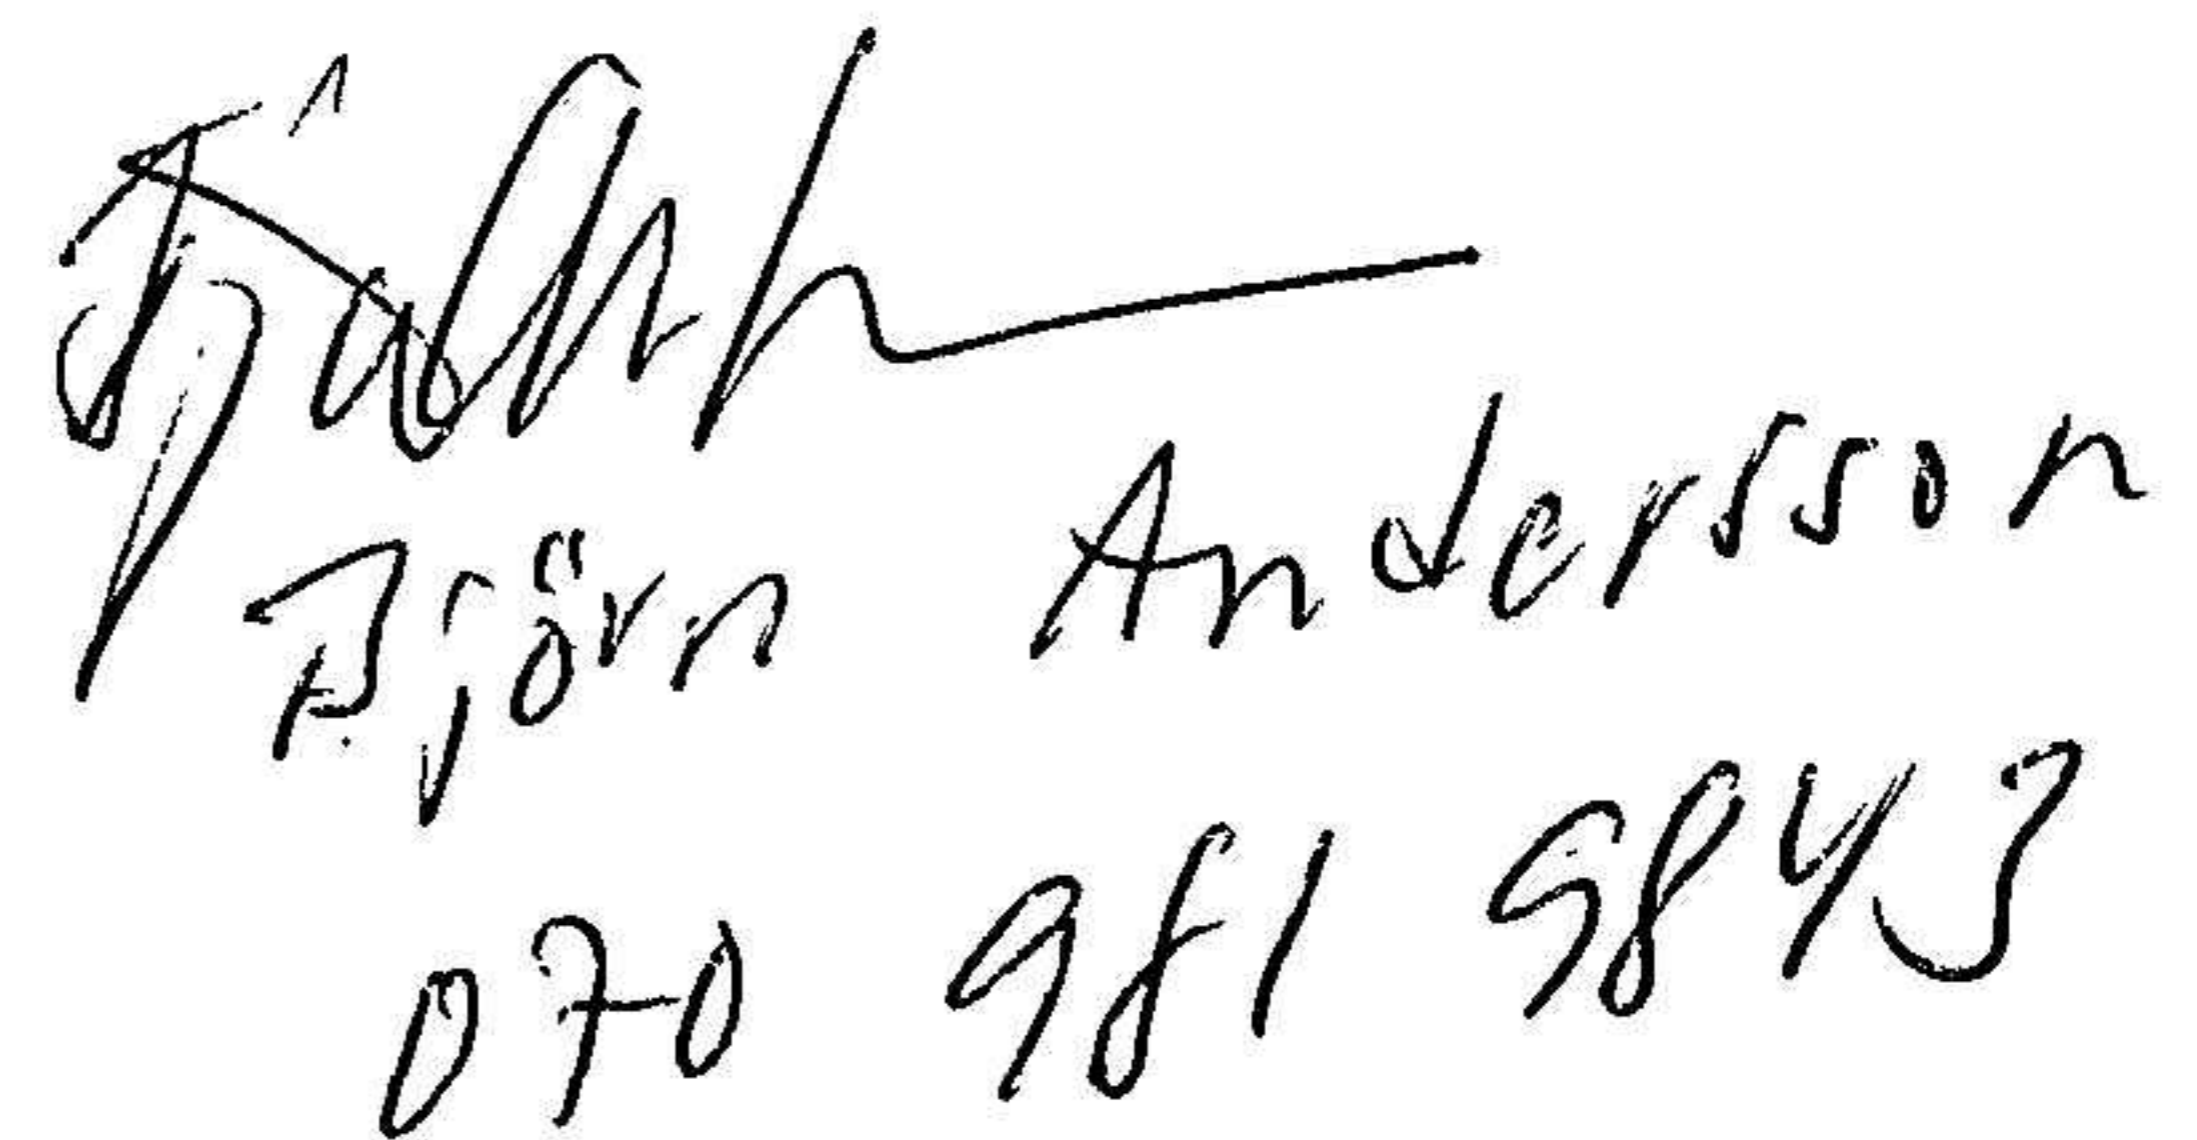 Björn Andersson
070 981 9843